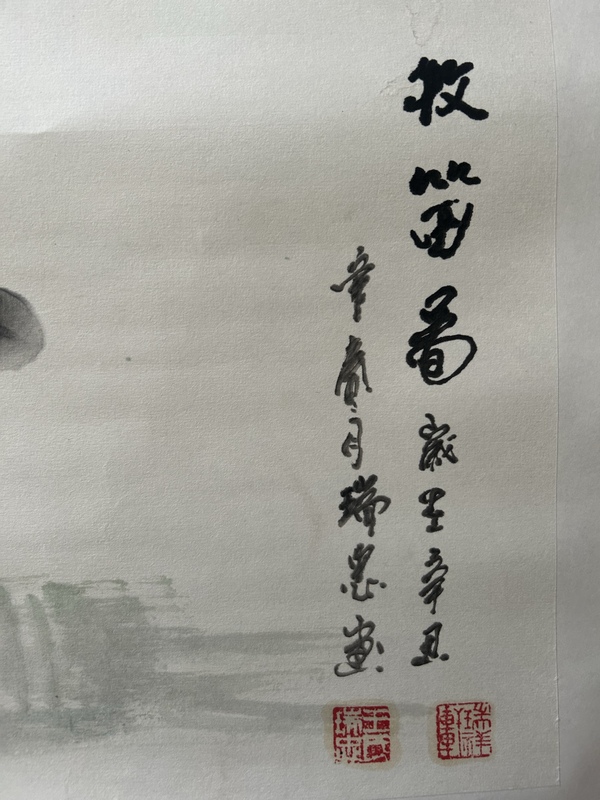 牧笛圖歲在辛丑
章貢月瑞忠畫